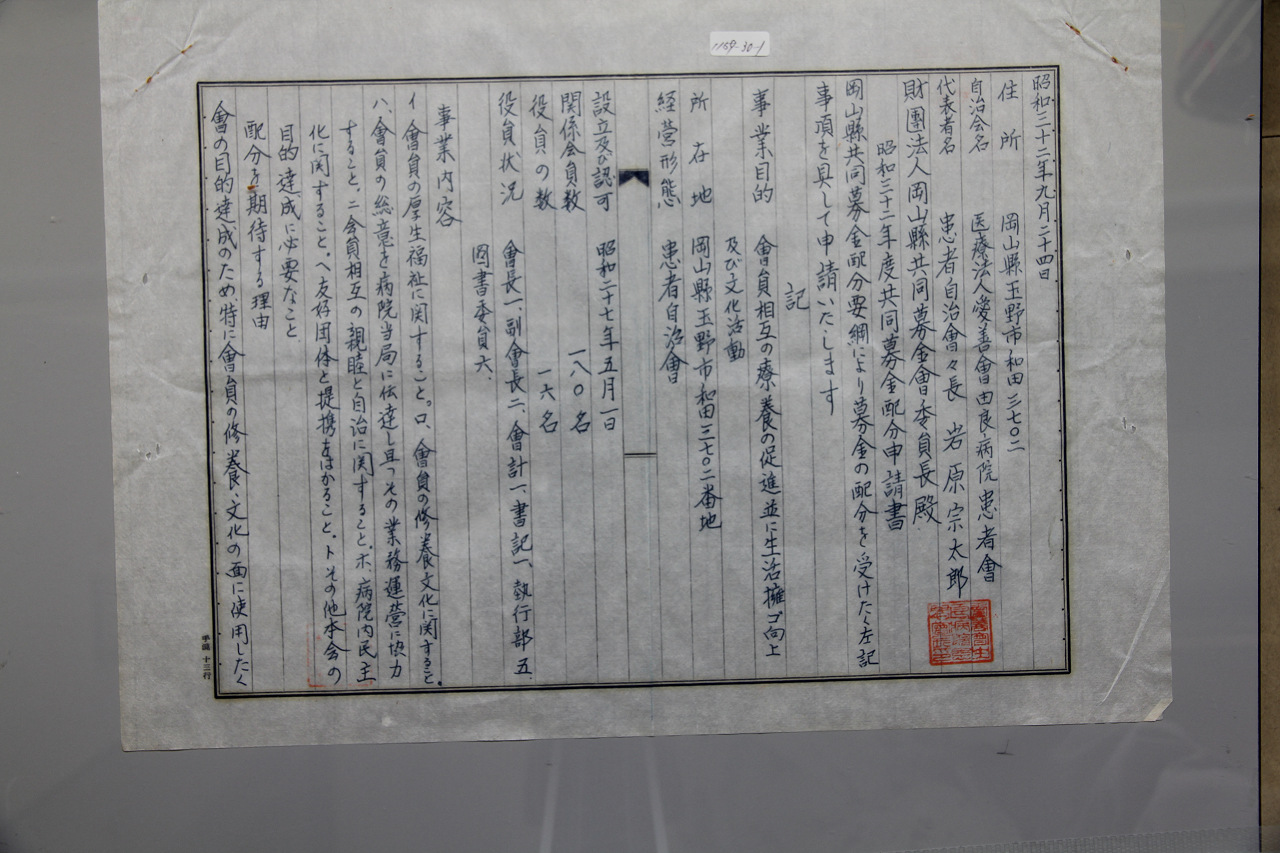 1169-30-1
昭和三十二年九月二十四日
住所 岡山縣玉野市和田三七〇二
自治会名 医療法人愛善會由良病院患者會
代表者名 患者自治會々長 岩原宗太郎
財團法人岡山縣共同募金會委員長殿
昭和三十二年度共同募金配分申請書
岡山縣共同募金配分要綱により募金の配分を受けたく左記
事項を具して申請いたします
記
事業目的 會員相互の療養の促進並に生活擁ゴ向上
及び文化活動
所在地 岡山縣玉野市和田三七〇二番地
経営形態 患者自治會
設立及び認可 昭和二十七年五月一日
関係会員数 一八〇名
役員の数 一六名
役員状況 會長一、副會長二、會計一、書記一、執行部五、
図書委員六、
事業内容
イ 會員の厚生福祉に関すること。ロ、會員の修養文化に関すること。
ハ、會員の総意を病院当局に伝達し且つその業務運営に協力
すること、ニ会員相互の親睦と自治に関すること。ホ、病院内民主
化に関すること。ヘ友好団体と提携をはかること。トその他本会の
目的達成に必要なこと
配分を期待する理由
會の目的達成のため、特に會員の修養、文化の面に使用したく
十三行